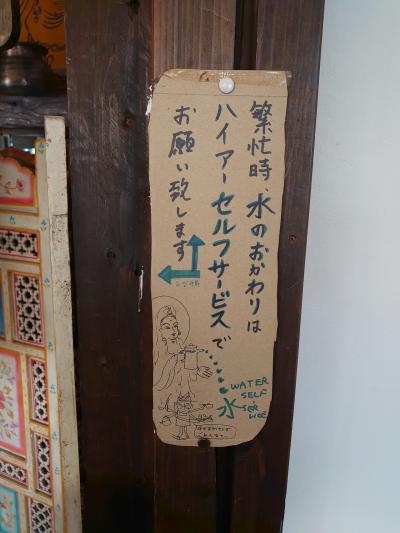 繁忙時、水のおかわりは
ハイアーセルフサービスで
お願い致します
水
WATER
SELF
SER
VICE